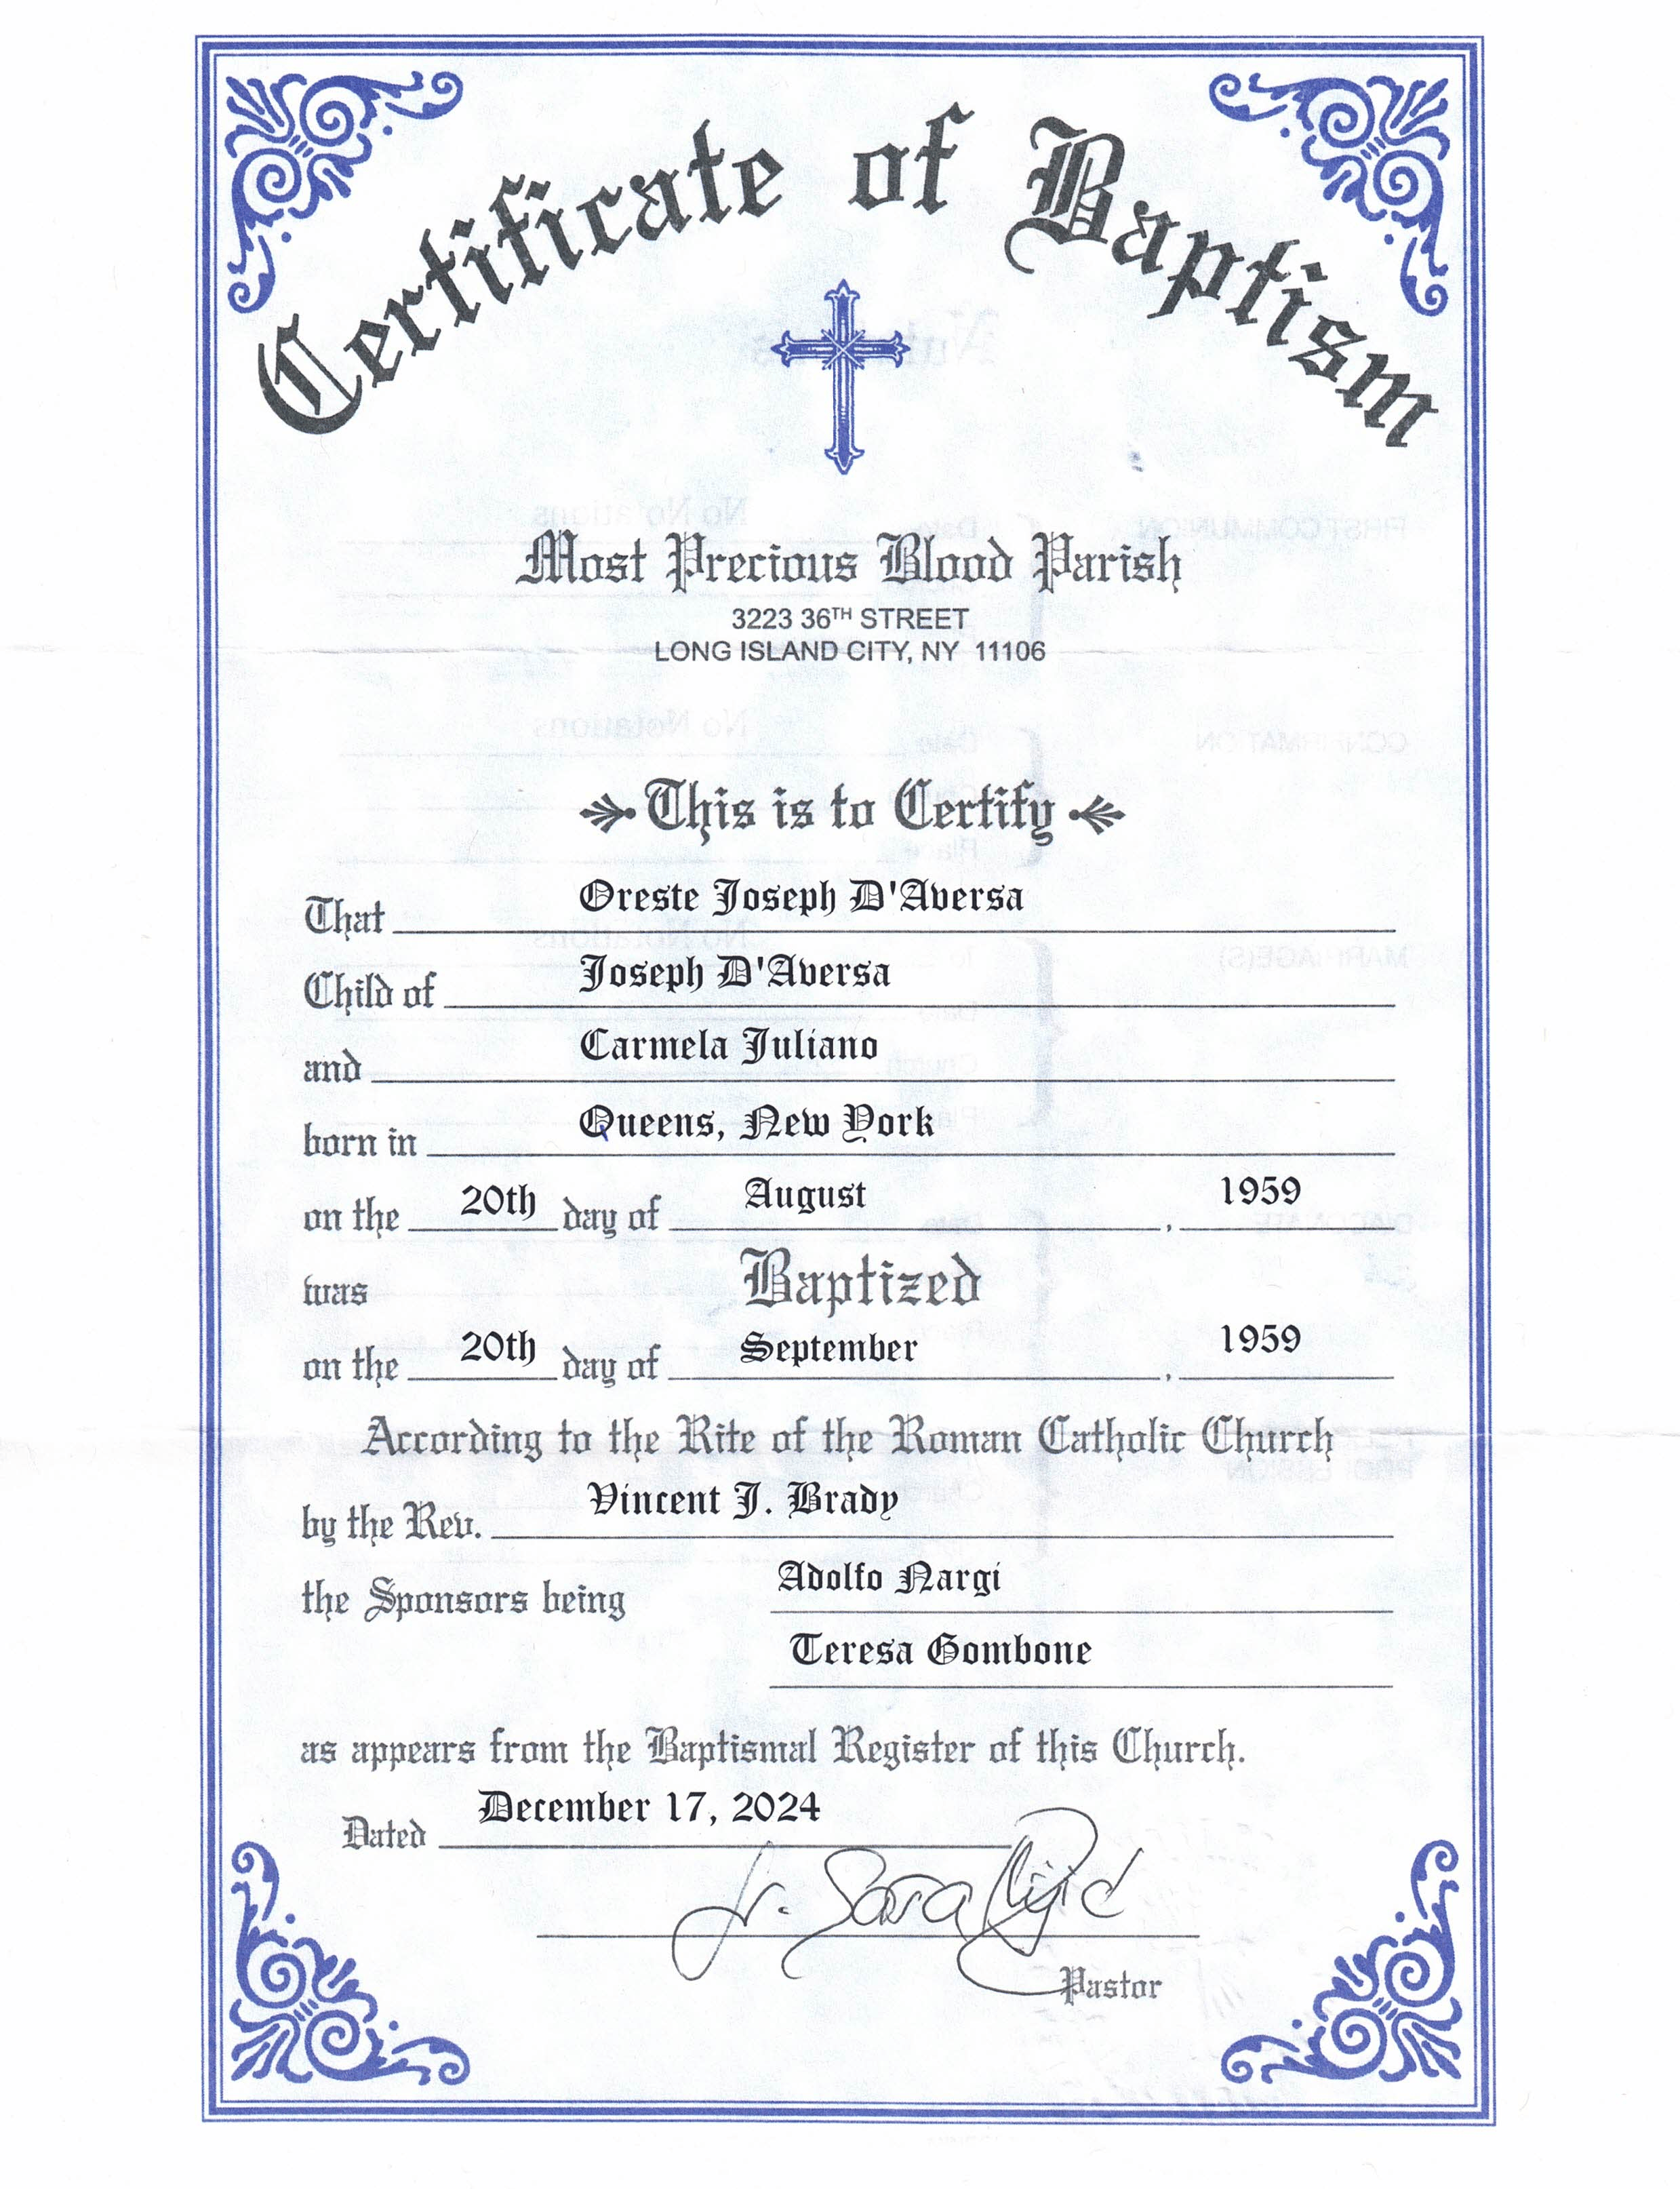 Certificate of Baptism
Most Precious Blood Parish
3223 36TH STREET
LONG ISLAND CITY, NY 11106
This is to Certify
That Oreste Joseph D'Aversa
Child of Joseph D'Aversa
and Carmela Juliano
born in Queens, New York
on the 20th day of August, 1959
was Baptized
on the 20th day of September, 1959
According to the Rite of the Roman Catholic Church
by the Rev. Vincent J. Brady
the Sponsors being Adolfo Nargi
Teresa Gombone
as appears from the Baptismal Register of this Church.
Dated December 17, 2024
Sr. Sara
Pastor